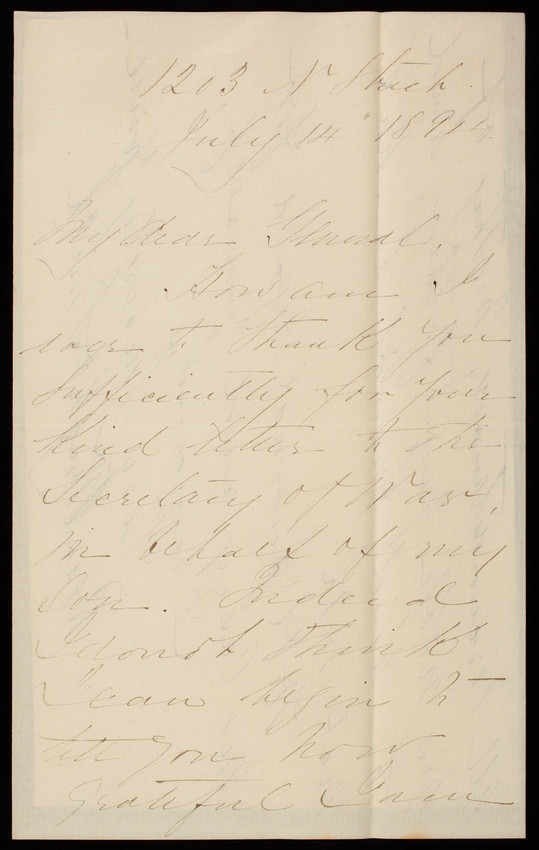 1203 N Street.
July 14" 1894.
My dear General,
How am I
ever to thank you
sufficiently for your
kind letter to the
Secretary of War,
in behalf of my
son. Indeed
I do not think
I can begin to
tell you how
grateful I am